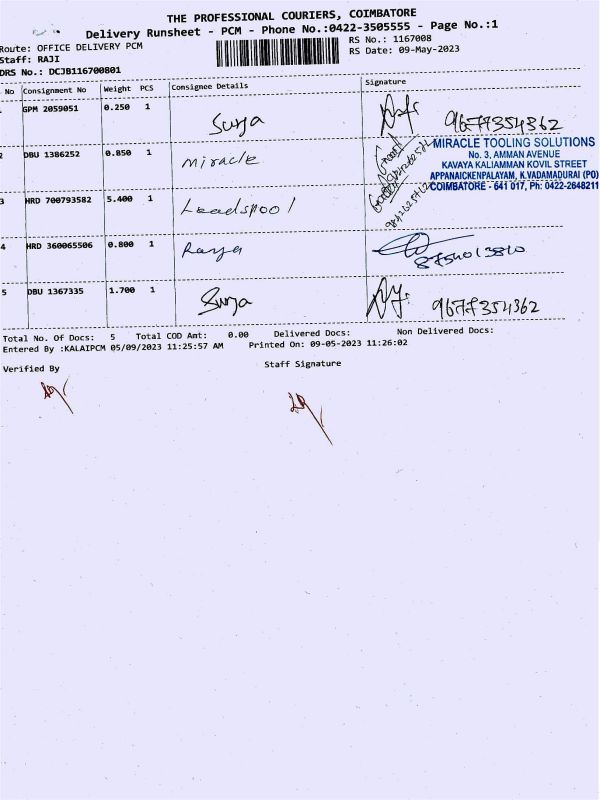 THE PROFESSIONAL COURIERS, COIMBATORE
Delivery Runsheet - PCM - Phone No.:0422-3505555 - Page No.:1
Route: OFFICE DELIVERY PCM
RS No.: 1167008
Staff: RAJI
RS Date: 09-May-2023
DRS No.: DCJB116700801
No Consignment No Weight PCS Consignee Details Signature
GPM 2059051 0.250 1 Surya 9677354362
2 DBU 1386252 0.850 1 Miracle
MIRACLE TOOLING SOLUTIONS
No. 3, AMMAN AVENUE
KAVAYA KALIAMMAN KOVIL STREET
APPANAICKENPALAYAM, K.VADAMADURAI (PO)
COIMBATORE - 641 017, Ph: 0422-2648211
3 HRD 700793582 5.400 1 Leadspool
4 HRD 360065506 0.800 1
5 DBU 1367335 1.700 1 Surya 9677354362
Total No. Of Docs: 5 Total COD Amt: 0.00 Delivered Docs: Non Delivered Docs:
Entered By :KALAIPCM 05/09/2023 11:25:57 AM Printed On: 09-05-2023 11:26:02
Verified By Staff Signature